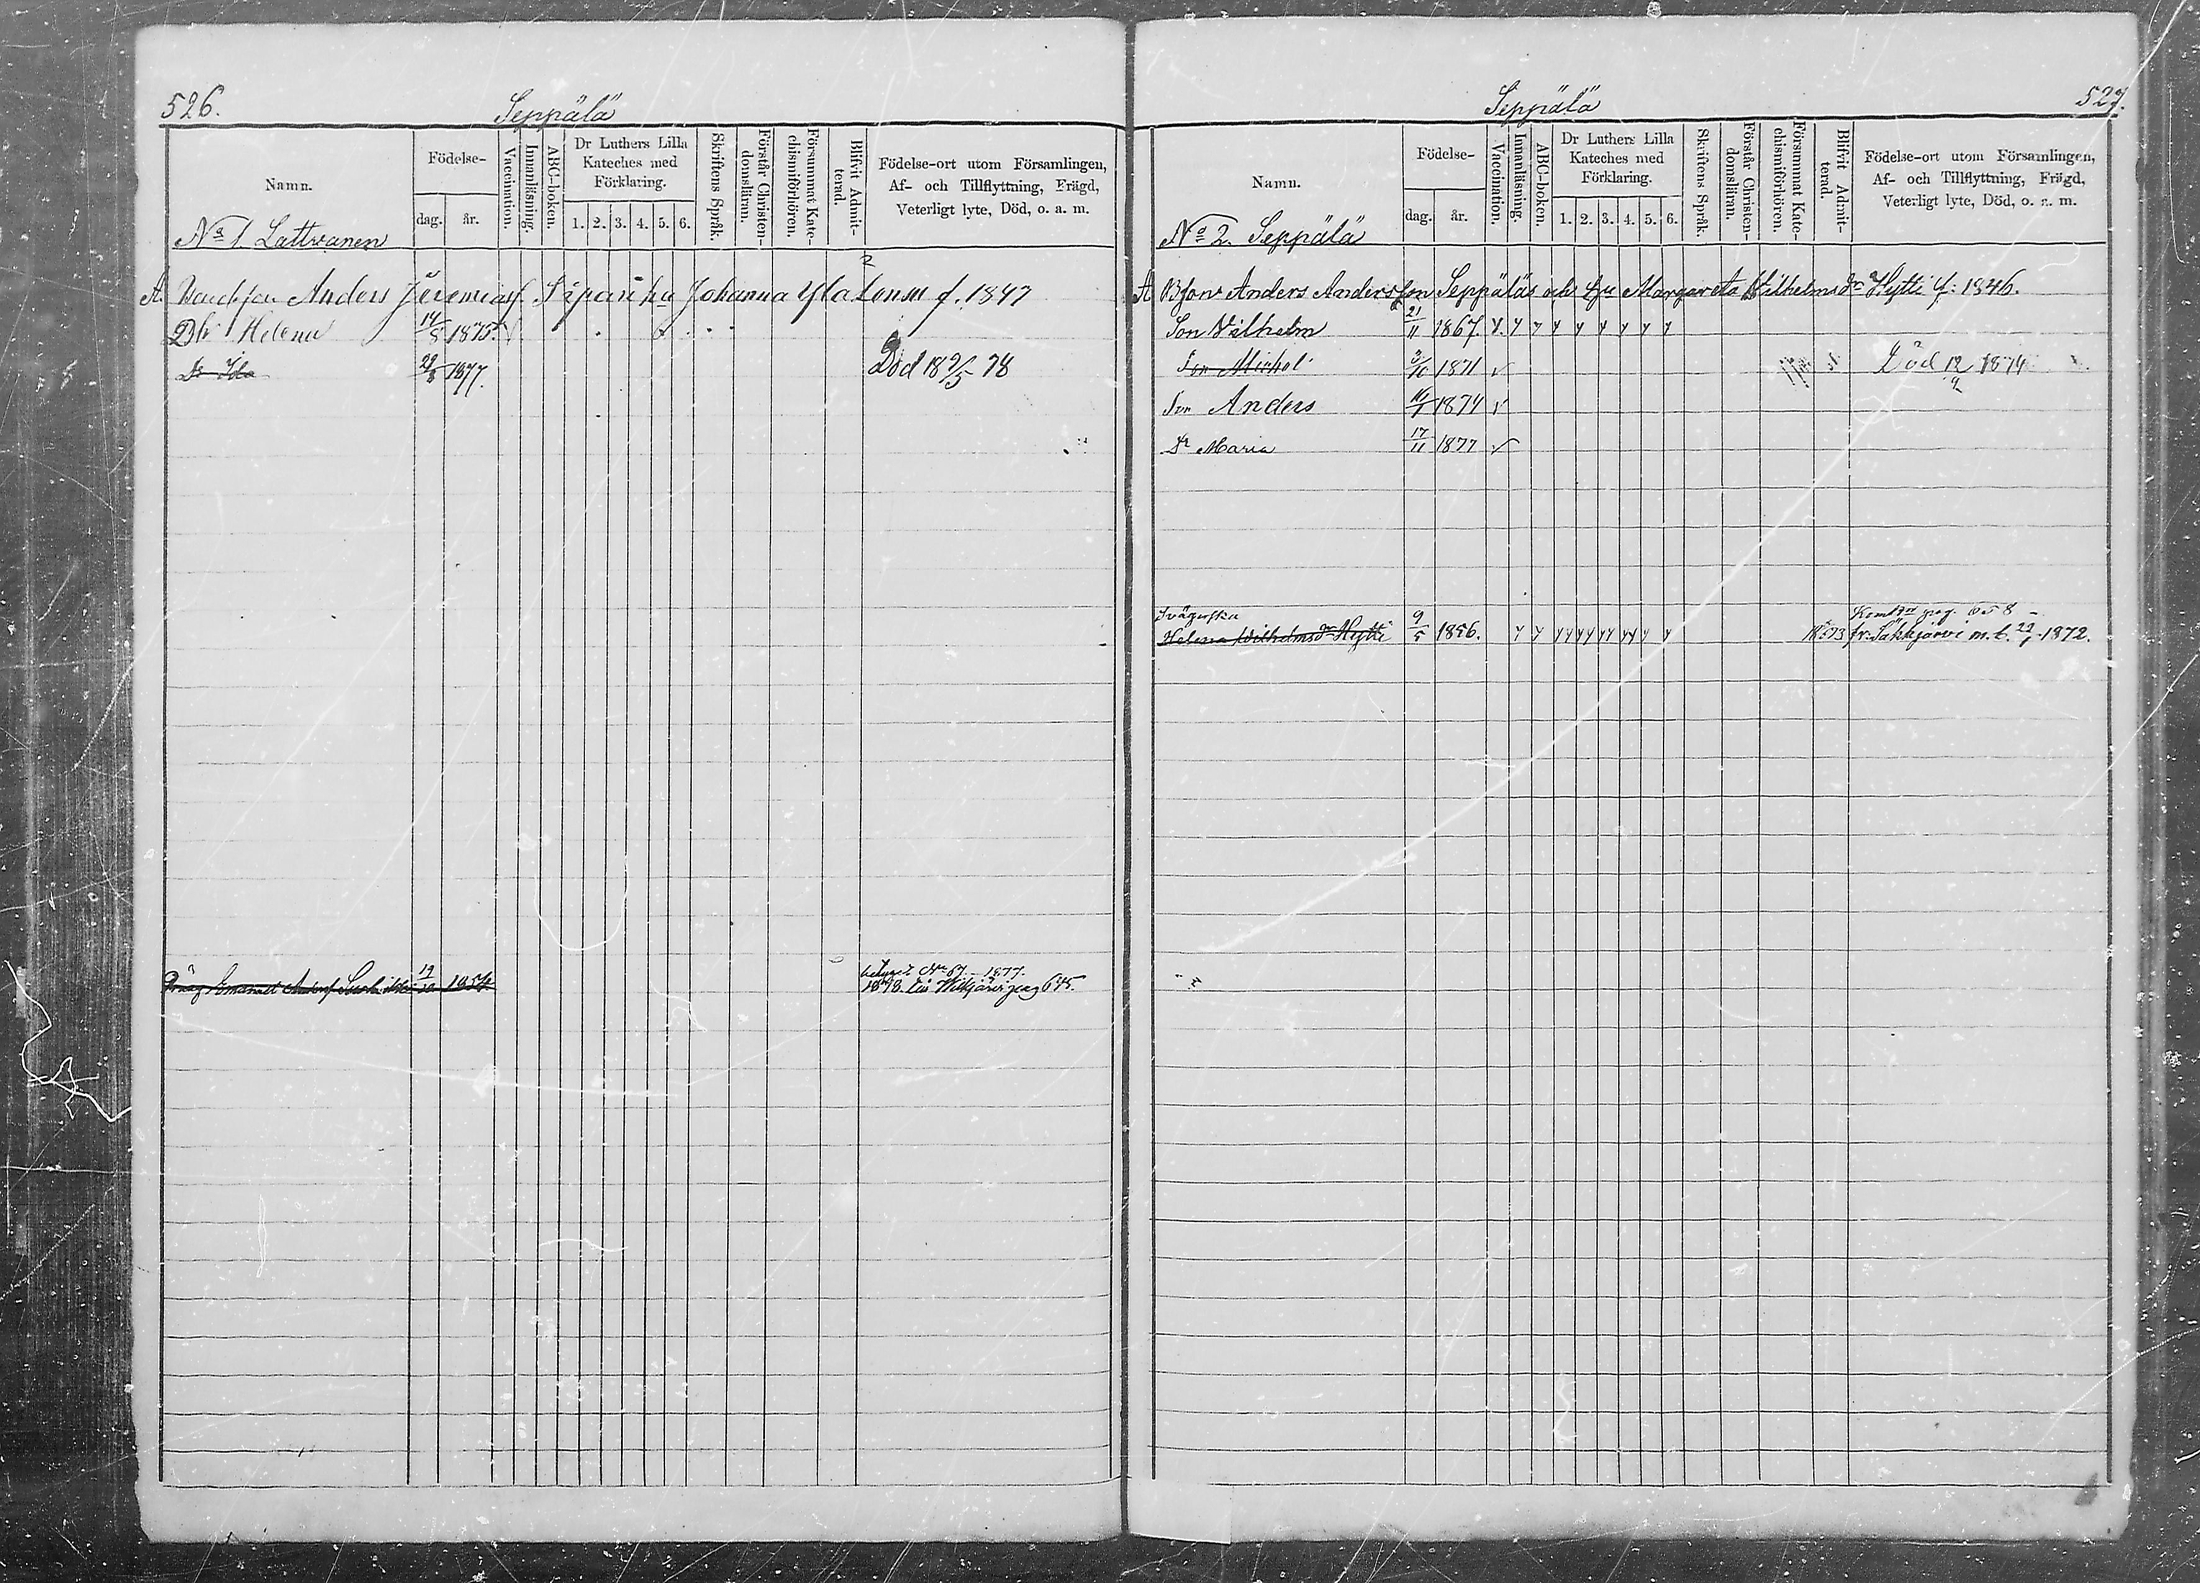 526.
Seppälä
Namn.
Födelse-
dag.
år.
Vaccination.
Innanläsning.
ABC-boken.
Dr Luthers Lilla
Kateches med
Förklaring.
1. 2. 3. 4. 5. 6.
Skriftens Språk.
Förstår Christen-
domsläran.
Försummat Kate-
chismiförhören.
Blifvit Admit-
terad.
Födelse-ort utom Församlingen,
Af- och Tillflyttning, Frägd,
Veterligt lyte, Död, o. a. m.
No 1. Lattvanen
A. Anders Jeremiasf. Johanna f. 1847
Helena 14/5 1875.
Dr Ida 1877. Död 18 78
Emanuel 19/10 1854
betyget No 67 - 1877.
pag 645.
527.
Seppälä
Namn.
Födelse-
dag.
år.
Vaccination.
Innanläsning.
ABC-boken.
Dr Luthers Lilla
Kateches med
Förklaring.
1. 2. 3. 4. 5. 6.
Skriftens Språk.
Förstår Christen-
domsläran.
Försummat Kate-
chismiförhören.
Blifvit Admit-
terad.
Födelse-ort utom Församlingen,
Af- och Tillflyttning, Frägd,
Veterligt lyte, Död, o. a. m.
No 2. Seppälä
A Anders Andersson Seppäläs och Margareta Wilhelmsdr Hytti f. 1846.
Son Vilhelm 21/11 1867. y. y y y y y y y y
Son Michel 3/10 1871 Död 12/9 1874
Son Anders 1874
Dr Maria 17/11 1877
Svägerska
Helena Wilhelmsdr Hytti 9/5 1856. y y yy yy yy yy y y
fr. Säkkjärvi m. b. 1872.